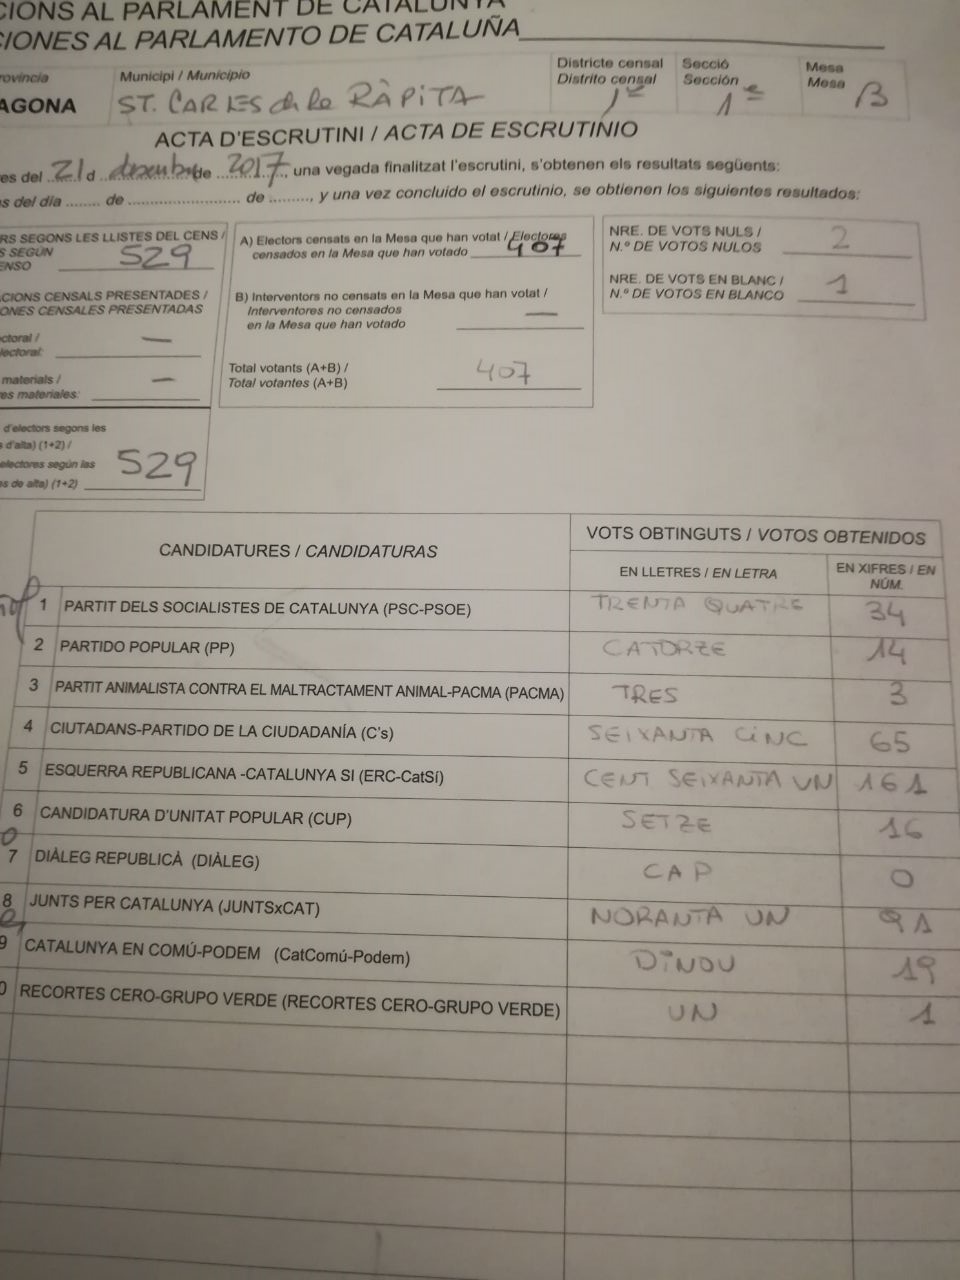 CIONS AL PARLAMENT DE CATALUNYA
CIONES AL PARLAMENTO DE CATALUÑA
rovíncia
AGONA
Municipi / Municipio
ST. CARLES de la RÀPITA
Districte censal
Distrito censal
1er
Secció
Sección
1ª
Mesa
Mesa
B
ACTA D'ESCRUTINI / ACTA DE ESCRUTINIO
es del 21 d desembre de 2017, una vegada finalitzat l'escrutini, s'obtenen els resultats següents:
s del día ....... de ....................... de ........., y una vez concluido el escrutinio, se obtienen los siguientes resultados:
RS SEGONS LES LLISTES DEL CENS /
S SEGÚN
ENSO 529
CIONS CENSALS PRESENTADES /
ONES CENSALES PRESENTADAS
ctoral /
lectoral: —
materials /
es materiales: —
d'electors segons les
s d'alta) (1+2) /
electores según las
s de alta) (1+2) 529
A) Electors censats en la Mesa que han votat / Electores
censados en la Mesa que han votado 407
B) Interventors no censats en la Mesa que han votat /
Interventores no censados
en la Mesa que han votado —
Total votants (A+B) /
Total votantes (A+B) 407
NRE. DE VOTS NULS /
N.º DE VOTOS NULOS 2
NRE. DE VOTS EN BLANC /
N.º DE VOTOS EN BLANCO 1
CANDIDATURES / CANDIDATURAS
VOTS OBTINGUTS / VOTOS OBTENIDOS
EN LLETRES / EN LETRA
EN XIFRES / EN
NÚM.
1 PARTIT DELS SOCIALISTES DE CATALUNYA (PSC-PSOE) TRENTA QUATRE 34
2 PARTIDO POPULAR (PP) CATORZE 14
3 PARTIT ANIMALISTA CONTRA EL MALTRACTAMENT ANIMAL-PACMA (PACMA) TRES 3
4 CIUTADANS-PARTIDO DE LA CIUDADANÍA (C's) SEIXANTA CINC 65
5 ESQUERRA REPUBLICANA -CATALUNYA SI (ERC-CatSí) CENT SEIXANTA UN 161
6 CANDIDATURA D'UNITAT POPULAR (CUP) SETZE 16
7 DIÀLEG REPUBLICÀ (DIÀLEG) CAP 0
8 JUNTS PER CATALUNYA (JUNTSxCAT) NORANTA UN 91
9 CATALUNYA EN COMÚ-PODEM (CatComú-Podem) DINOU 19
0 RECORTES CERO-GRUPO VERDE (RECORTES CERO-GRUPO VERDE) UN 1